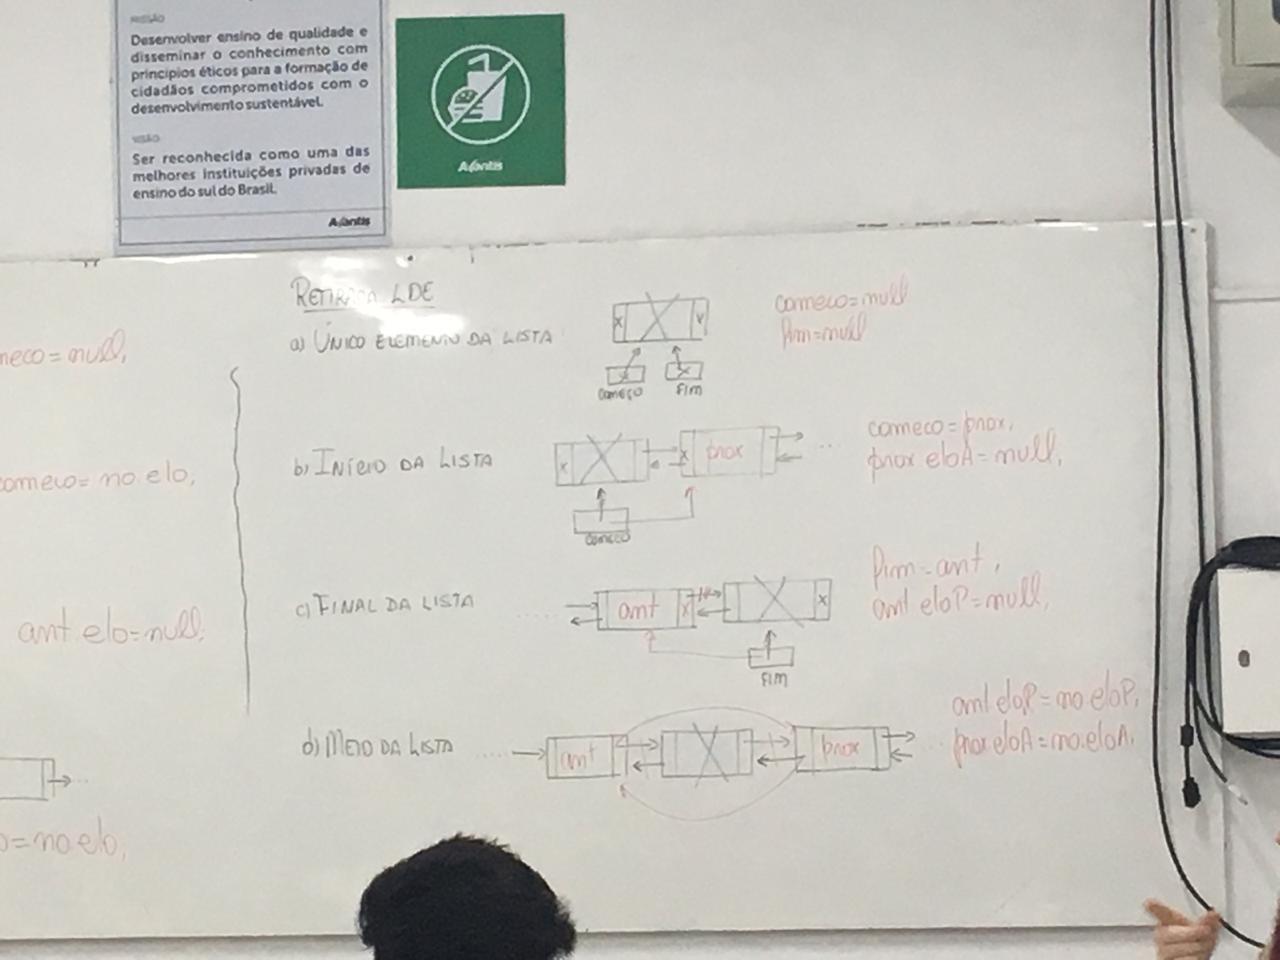 MISSÃO
Desenvolver ensino de qualidade e
disseminar o conhecimento com
princípios éticos para a formação de
cidadãos comprometidos com o
desenvolvimento sustentável.
VISÃO
Ser reconhecida como uma das
melhores instituições privadas de
ensino do sul do Brasil.
Avantis
Avantis
meco = null;
comeco = no.elo;
ant.elo = null;
= no.elo;
RETIRADA LDE
a) ÚNICO ELEMENTO DA LISTA
começo
fim
comeco = null
fim = null
b) INÍCIO DA LISTA
prox
...
começo
comeco = prox;
prox.eloA = null;
c) FINAL DA LISTA
ant
FIM
fim = ant;
ant.eloP = null;
d) MEIO DA LISTA
ant
prox
ant.eloP = no.eloP;
prox.eloA = no.eloA;